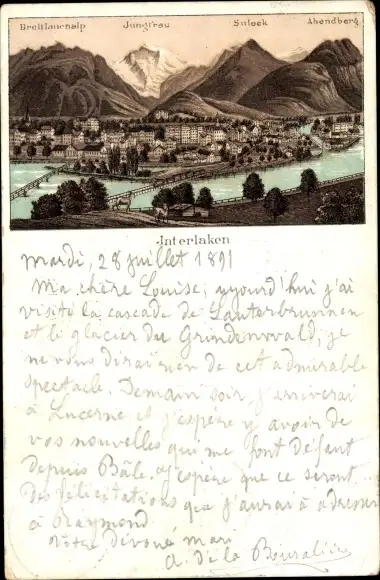 Breitlauenalp Jungfrau Suleck Abendberg
Interlaken
Mardi, 28 juillet 1891
Ma chère Louise, aujourd'hui j'ai
visité la cascade de Lauterbrunnen
et le glacier du Grindenwald, je
ne vous dirai rien de cet admirable
spectacle. Demain soir, j'arriverai
à Lucerne et j'espère y avoir de
vos nouvelles qui me font défaut
depuis Bâle. J'espère que ce seront
des félicitations que j'aurai à adresser
à Raymond.
Votre dévoué mari
A. de la